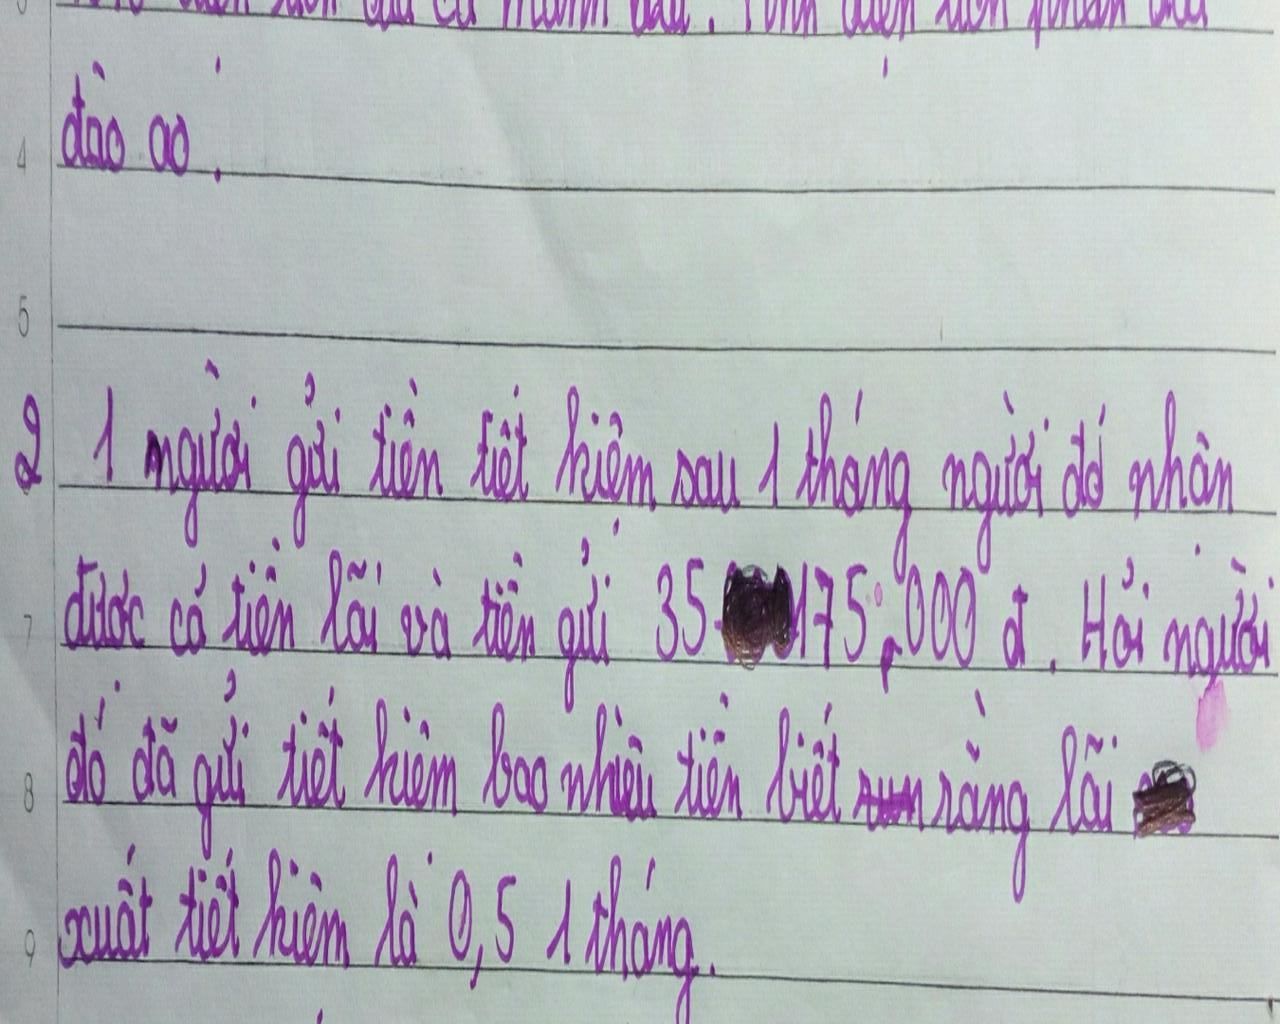 đào ao.
2 1 người gửi tiền tiết kiệm sau 1 tháng người đó nhân
được cả tiền lãi và tiền gửi 35.175.000 đ. Hỏi người
đó đã gửi tiết kiệm bao nhiêu tiền biết rằng lãi
xuất tiết kiệm là 0,5 1 tháng.